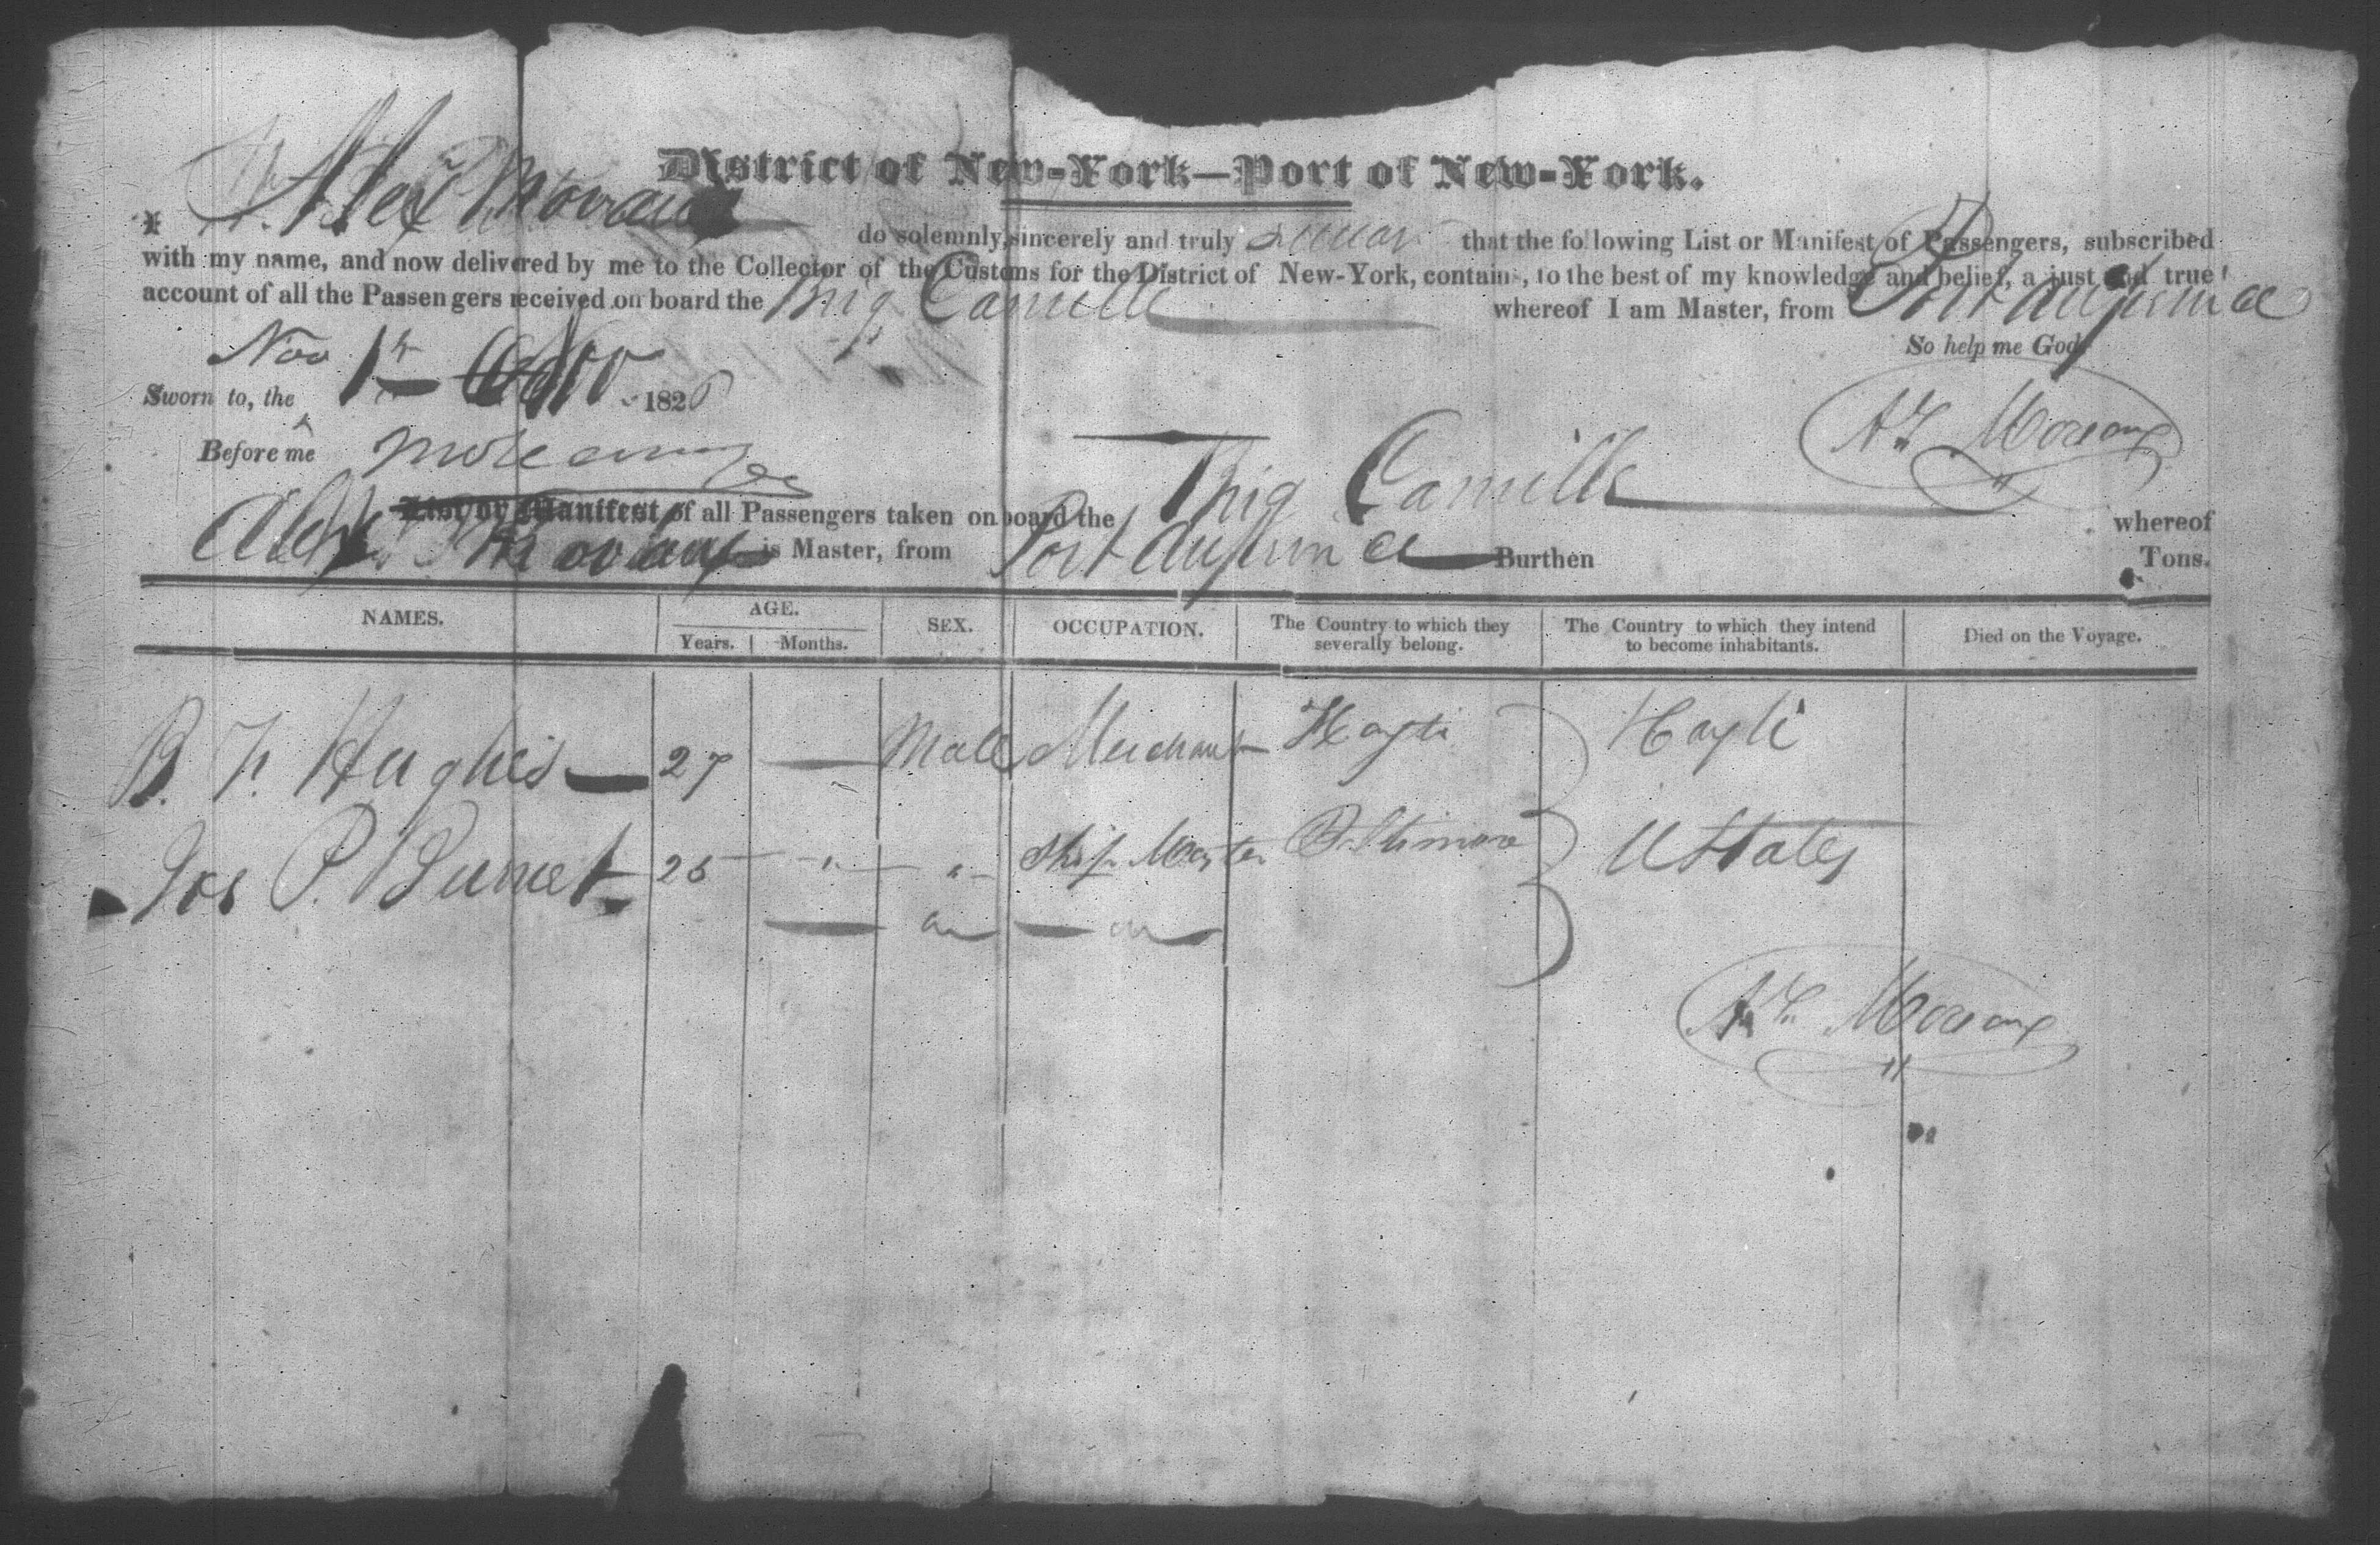 District of New-York—Port of New-York.
I Alexr do solemnly, sincerely and truly swear that the following List or Manifest of Passengers, subscribed
with my name, and now delivered by me to the Collector of the Customs for the District of New-York, contains, to the best of my knowledge and belief, a just and true
account of all the Passengers received on board the Brig Camille whereof I am Master, from Port au prince
So help me God.
Nov 1st
Sworn to, the 1826
Before me
List or Manifest of all Passengers taken on board the Brig Camille whereof
Alexr is Master, from Port au prince Burthen Tons.
NAMES. AGE. SEX. OCCUPATION. The Country to which they severally belong. The Country to which they intend to become inhabitants. Died on the Voyage.
Years. Months.
B. F. Hughes 27 — Male Merchant Hayti Hayti
Jos P. Burnet 25 " " Ship Master Baltimore U States